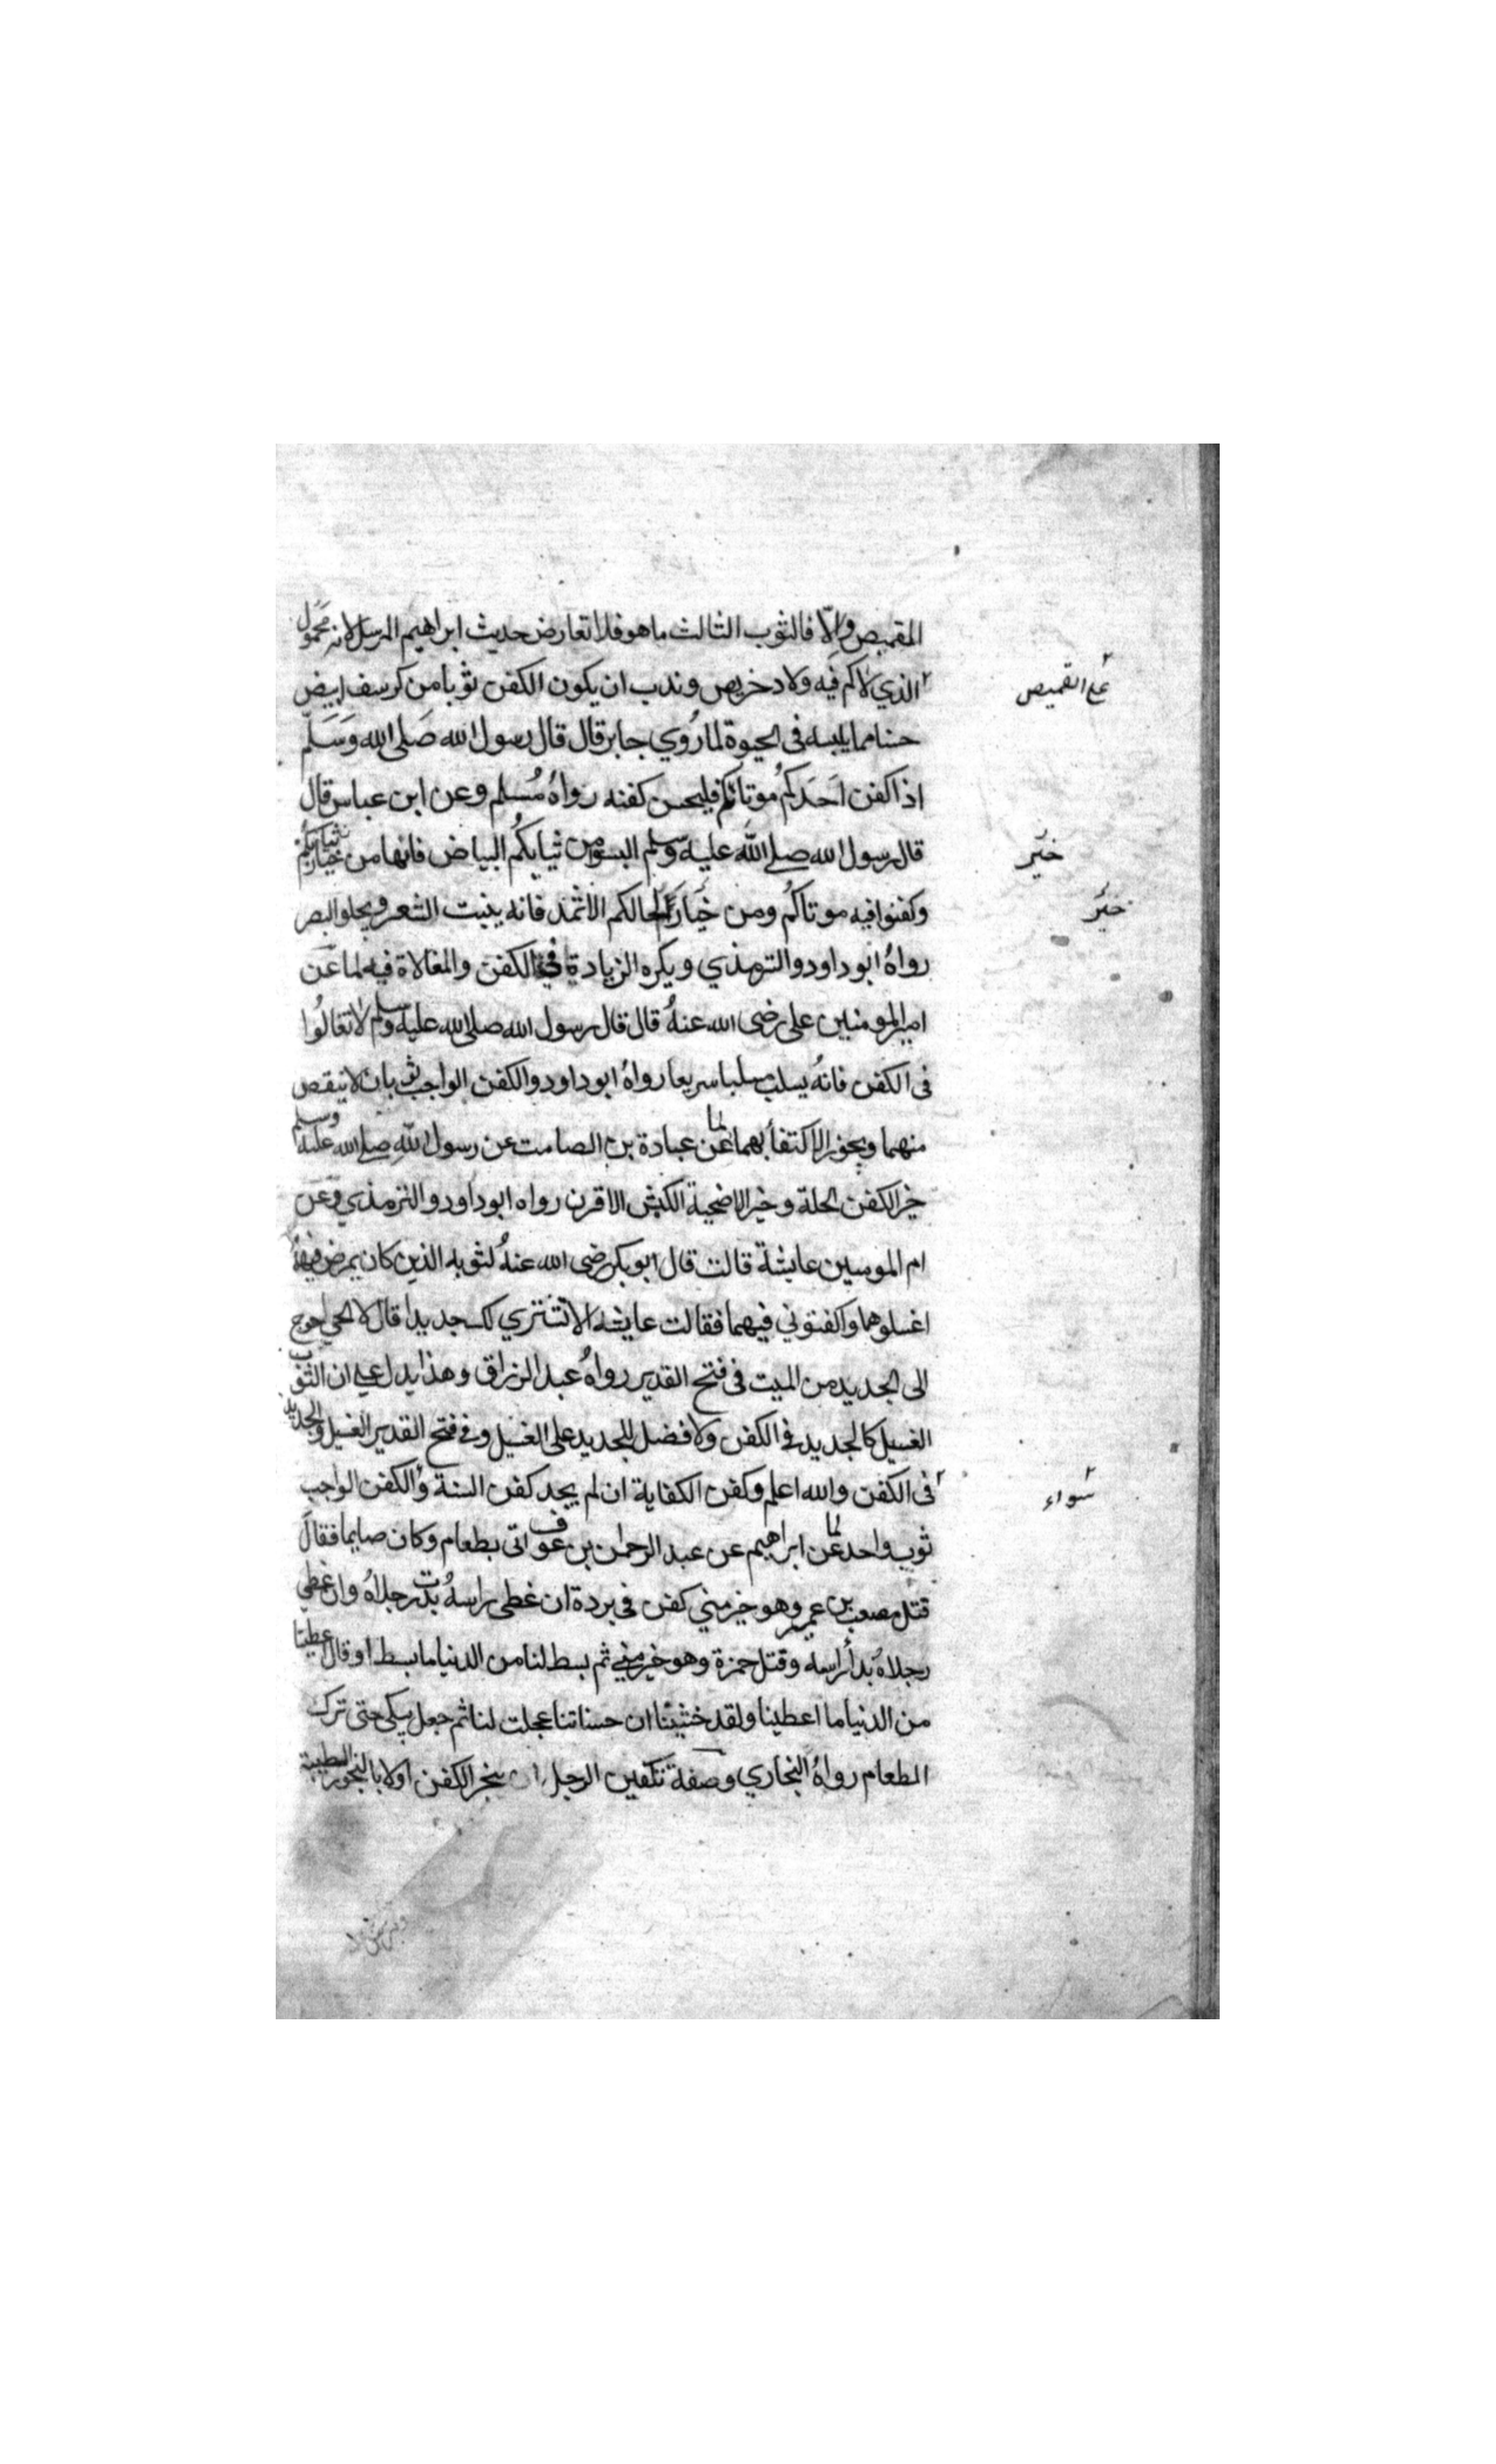 المقميص والّا فالثوب الثالث ما هو فلا تعارض حديث ابراهيم المرسل لانه محمول
على القميص
الذي لاكم فيه ولا دخريص وندب ان يكون الكفن ثوبا من كرسف ابيض
حسنا مما يلبسه فى الحيوة لما رُوي جابر قال قال رسول الله صَلى الله وَسَلّم
اذا كفن اَحَدكُم موتاكم فليحسن كفنه رواهُ مُسلم وعن ابن عباس قال
قال رسول الله صلے الله عليه وسلم البسوا من ثيابكُم البياض فانها من خيار ثيابكُم
خير
وكفنوا فيه موتاكُم ومن خيار اكحالكم الاثمد فانه ينبت الشعر ويجلو البصر
خير
رواهُ ابو داود والترمذي ويكره الزيادة في الكفن والمغالاة فيه لما عَن
امير المومنين على رضى الله عنهُ قال قال رسول الله صلى الله عليه وسلم لا تغالُوا
فى الكفن فانهُ يسلب سلبا سريعا رواهُ ابو داود والكفن الواجب ثوبان لا ينقص
منهما ويجوز الاكتفأ بهما لما عن عبادة بن الصامت عن رسول الله صلے الله عليه وسلم
خير الكفن الحلة وخير الاضحية الكبش الاقرن رواه ابو داود والترمذي وعن
ام المومنين عايشة قالت قال ابو بكر رضى الله عنهُ لثوبه الذين كان يمرض فيهما
اغسلوهما وكفنوني فيهما فقالت عايشه الا نشتري لك جديدا قال لا الحي احوج
الى الجديد من الميت فى فتح القدير رواهُ عبد الرزاق وهذا يدل على ان الثوب
الغسيل كالجديد في الكفن ولا فضل للجديد على الغسيل وفي فتح القدير الغسيل والجديد
سواء
فى الكفن والله اعلم وكفن الكفاية ان لم يجد كفن السنة والكفن الواجب
ثوب واحد لما عن ابراهيم عن عبد الرحمان بن عوف اتى بطعام وكان صايما فقال
قتل مصعب بن عمير وهو خير مني كفن فى بردة ان غطى راسهُ بدت رجلاهُ وان غطي
رجلاهُ بدأ راسه وقتل حمزة وهو خير مني ثم بسط لنا من الدنيا ما بسط او قال اعطينا
من الدنيا ما اعطينا ولقد خشينا ان حسناتنا عجلت لنا ثم جعل يبكى حتى ترك
الطعام رواهُ البخاري وصفة تكفين الرجل ان يبخر الكفن اولا بالبخور الطيبة